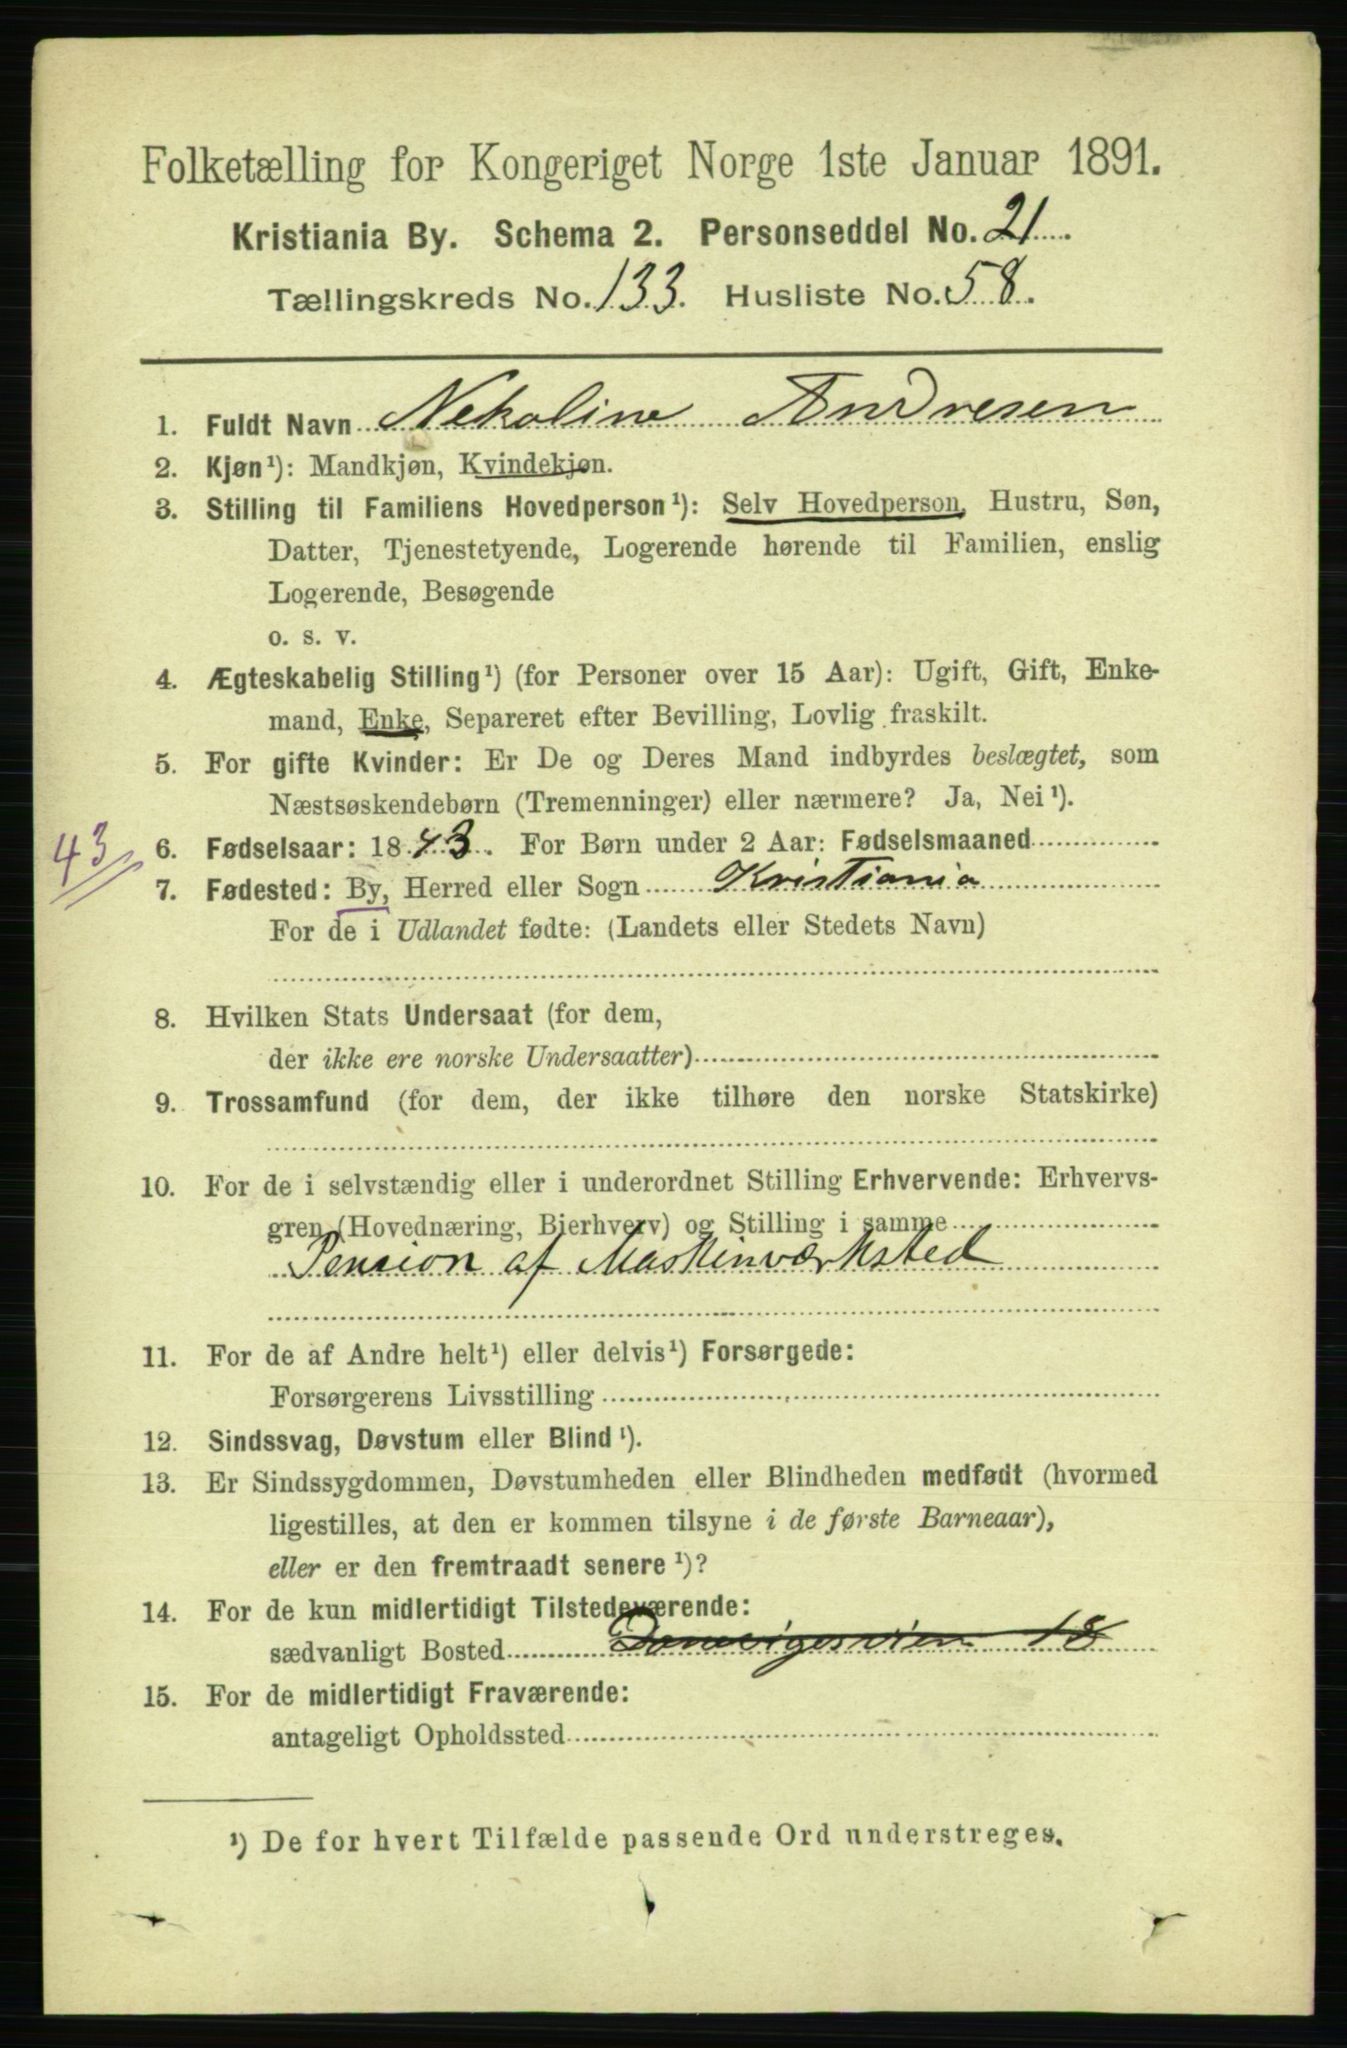 Folketælling for Kongeriget Norge 1ste Januar 1891.
Kristiania By. Schema 2. Personseddel No. 21
Tællingskreds No. 133. Husliste No. 58.
1. Fuldt Navn Nekoline Andresen
2. Kjøn¹): Mandkjøn, Kvindekjøn.
3. Stilling til Familiens Hovedperson¹): Selv Hovedperson, Hustru, Søn,
Datter, Tjenestetyende, Logerende hørende til Familien, enslig
Logerende, Besøgende
o. s. v.
4. Ægteskabelig Stilling¹) (for Personer over 15 Aar): Ugift, Gift, Enke-
mand, Enke, Separeret efter Bevilling, Lovlig fraskilt.
5. For gifte Kvinder: Er De og Deres Mand indbyrdes beslægtet, som
Næstsøskendebørn (Tremenninger) eller nærmere? Ja, Nei¹).
43
6. Fødselsaar: 1843. For Børn under 2 Aar: Fødselsmaaned
7. Fødested: By, Herred eller Sogn Kristiania
For de i Udlandet fødte: (Landets eller Stedets Navn)
8. Hvilken Stats Undersaat (for dem,
der ikke ere norske Undersaatter)
9. Trossamfund (for dem, der ikke tilhøre den norske Statskirke)
10. For de i selvstændig eller i underordnet Stilling Erhvervende: Erhvervs-
gren (Hovednæring, Bierhverv) og Stilling i samme
Pension af Maskinværksted
11. For de af Andre helt¹) eller delvis¹) Forsørgede:
Forsørgerens Livsstilling
12. Sindssvag, Døvstum eller Blind¹).
13. Er Sindssygdommen, Døvstumheden eller Blindheden medfødt (hvormed
ligestilles, at den er kommen tilsyne i de første Barneaar),
eller er den fremtraadt senere¹)?
14. For de kun midlertidigt Tilstedeværende:
sædvanligt Bosted 18
15. For de midlertidigt Fraværende:
antageligt Opholdssted
¹) De for hvert Tilfælde passende Ord understreges.